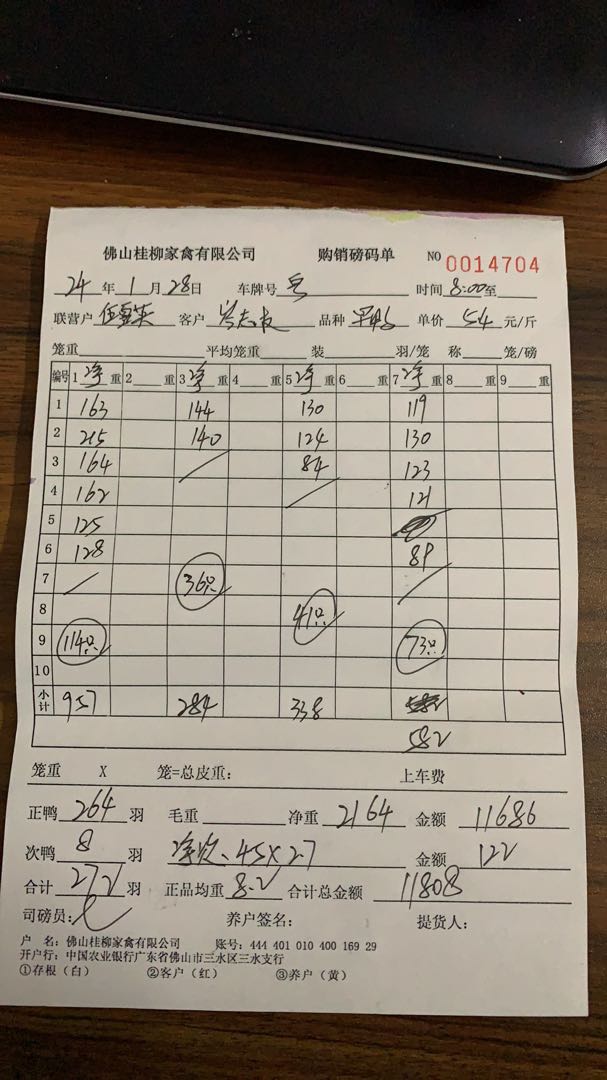 佛山桂柳家禽有限公司 购销磅码单 NO 0014704
24 年 1 月 28 日 车牌号 时间 8:00 至
联营户 伍重英 客户 岑志友 品种 单价 5.4 元/斤
笼重 平均笼重 装 羽/笼 称 笼/磅
编号 1 净 重 2 重 3 净 重 4 重 5 净 重 6 重 7 净 重 8 重 9 重
1 163 144 130 119
2 215 140 124 130
3 164 84 123
4 162 121
5 125
6 128 89
7 36只
8 41只
9 114只 73只
10
小计 957 284 338
582
笼重 X 笼=总皮重: 上车费
正鸭 264 羽 毛重 净重 2164 金额 11686
次鸭 8 羽 净次. 45X2.7 金额 122
合计 272 羽 正品均重 8.2 合计总金额 11808
司磅员: 养户签名: 提货人:
户 名: 佛山桂柳家禽有限公司 账号: 444 401 010 400 169 29
开户行: 中国农业银行广东省佛山市三水区三水支行
①存根（白） ②客户（红） ③养户（黄）